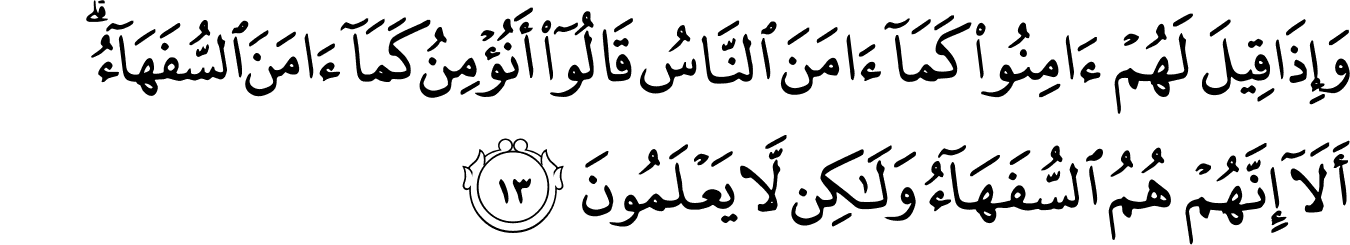 وَإِذَا قِيلَ لَهُمْ ءَامِنُوا۟ كَمَآ ءَامَنَ ٱلنَّاسُ قَالُوٓا۟ أَنُؤْمِنُ كَمَآ ءَامَنَ ٱلسُّفَهَآءُ ۗ
أَلَآ إِنَّهُمْ هُمُ ٱلسُّفَهَآءُ وَلَـٰكِن لَّا يَعْلَمُونَ ١٣